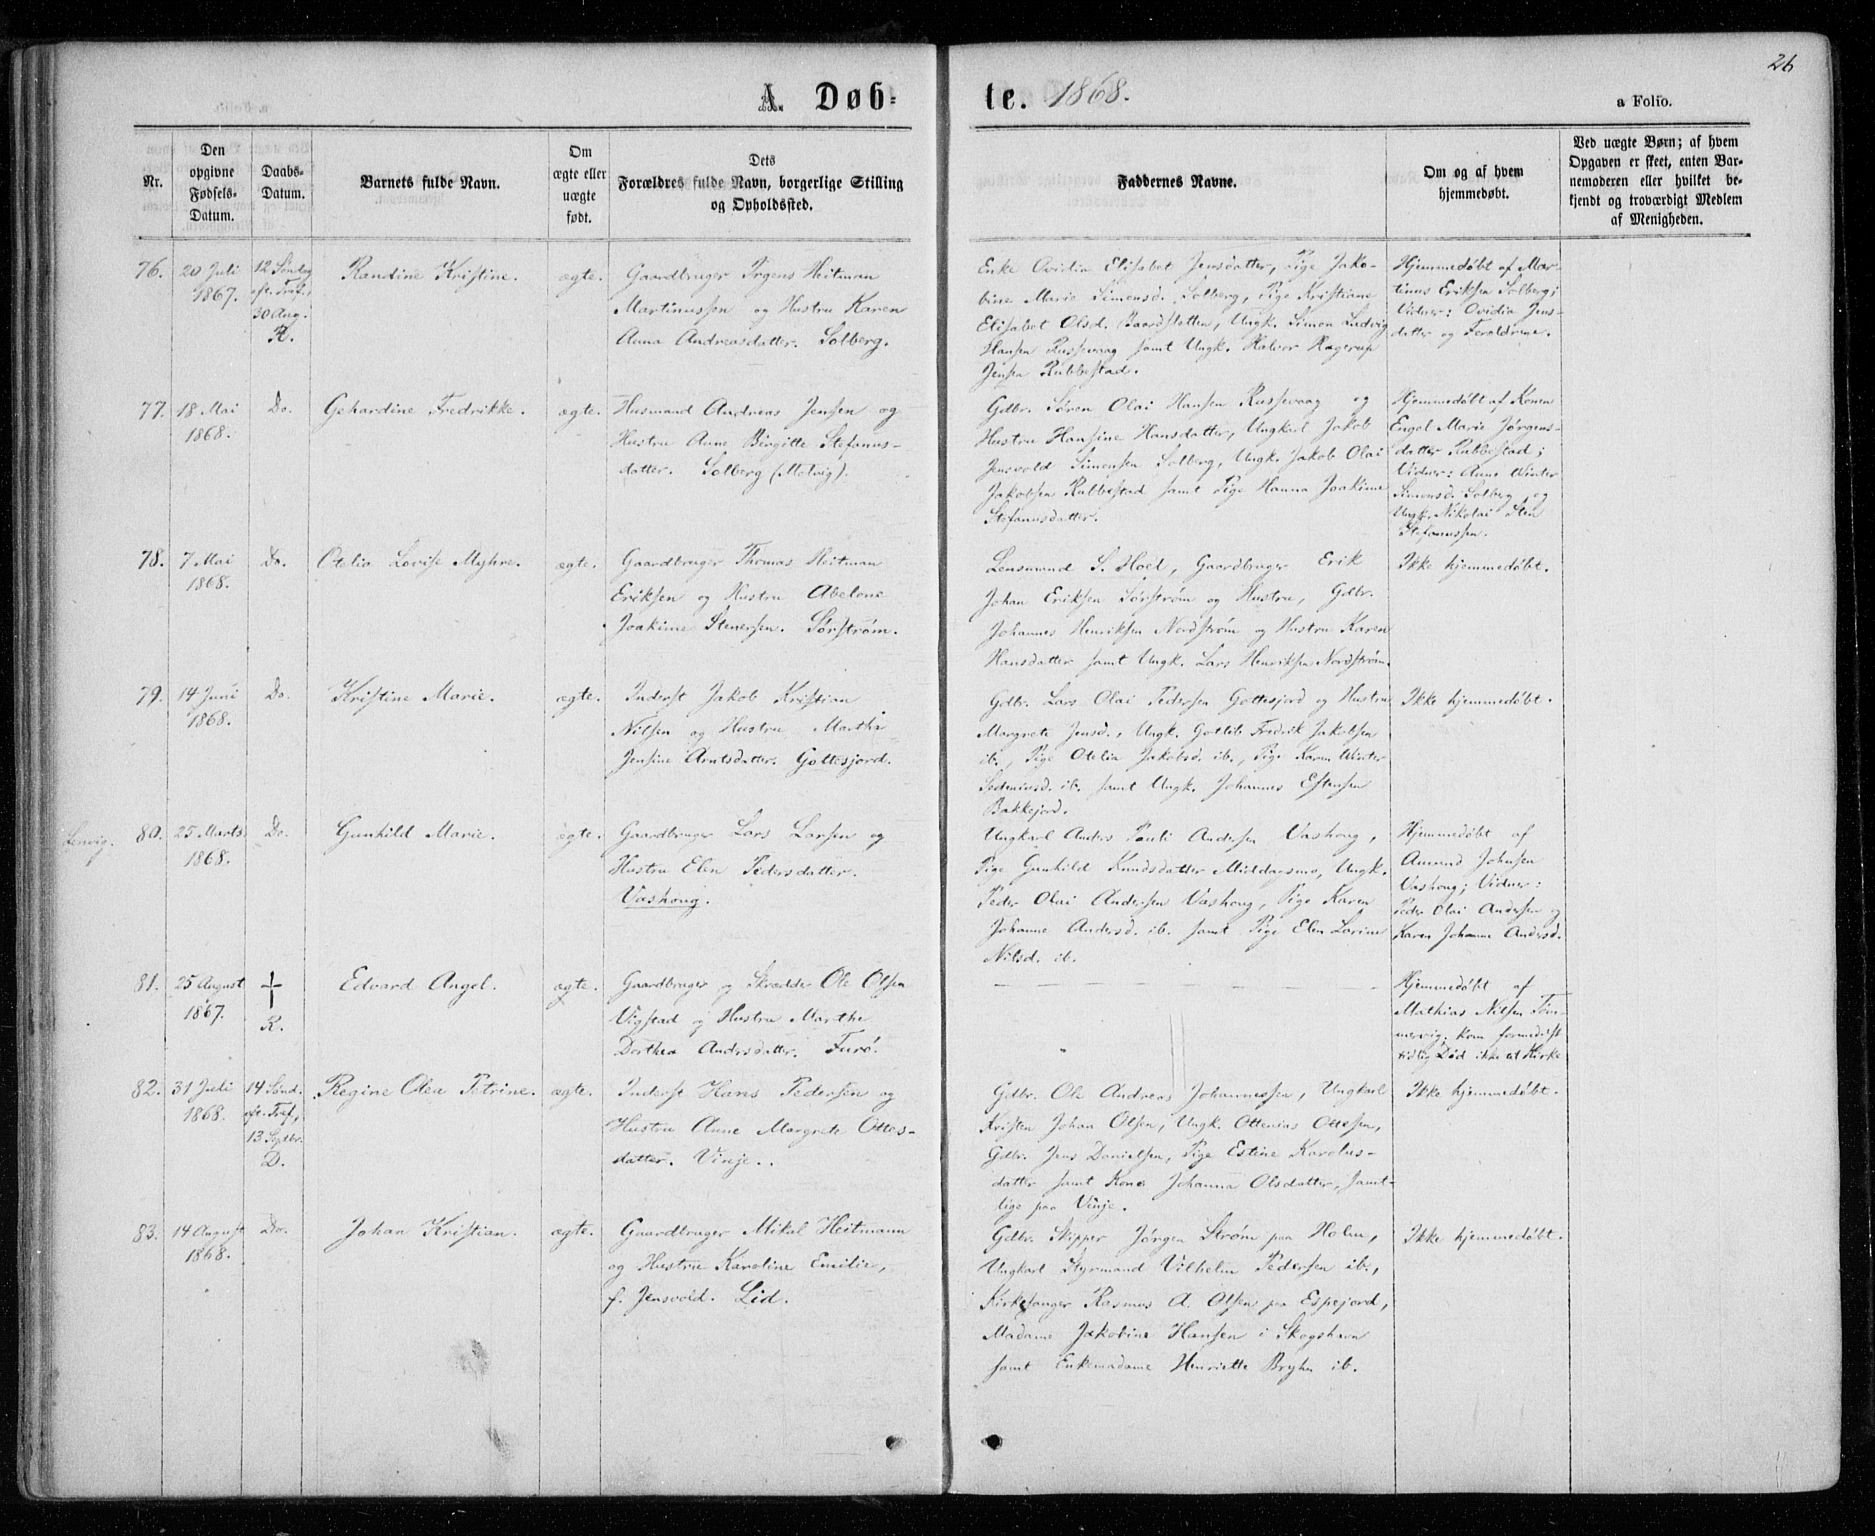 26
A. Døb-
te. 1868.
a Folio.
Nr.
Den
opgivne
Fødsels-
Datum.
Daabs-
Datum.
Barnets fulde Navn.
Om
ægte eller
uægte
født.
Dets
Forældres fulde Navn, borgerlige Stilling
og Opholdssted.
Faddernes Navne.
Om og af hvem
hjemmedøbt.
Ved uægte Børn; af hvem
Opgaven er skeet, enten Bar-
nemoderen eller hvilket be-
kjendt og troværdigt Medlem
af Menigheden.
76.
20 Juli
1867.
12 Søndag
eft. Tref.
30 Aug.
R.
Randine Kristine.
ægte.
Gaardbruger Irgens Heitman
Martinussen og Hustru Karen
Anna Andreasdatter. Solberg.
Enke Ovidia Elisabet Jensdatter, Pige Jako-
bine Marie Simonsd. Solberg, Pige Kristiane
Elisabet Olsd. Baardsletten, Ungk. Simon Ludvig
Hansen Russevaag samt Ungk. Halvor Hagerup
Jensen Rubbestad.
Hjemmedøbt af Mar-
tinus Eriksen Solberg;
Vidner: Ovidia Jens-
datter og Forældrene.
77.
18 Mai
1868.
Do.
Gehardine Fredrikke.
ægte.
Husmand Andreas Jensen og
Hustru Anne Birgitte Stefanus-
datter. Solberg (Molvig).
Gdbr. Søren Olai Hansen Russevaag og
Hustru Hansine Hansdatter, Ungkarl Jakob
Jensvold Simonsen Solberg, Ungk. Jakob Olai
Jakobsen Rubbestad samt Pige Hanna Joakime
Stefanusdatter.
Hjemmedøbt af Konen
Engel Marie Jørgens-
datter Rubbestad;
Vidner: Anne Winter
Simonsd. Solberg og
Ungk. Nikolai Sten
Stefanussen.
78.
7 Mai
1868.
Do.
Otelie Lovise Myhre.
ægte.
Gaardbruger Thomas Heitman
Eriksen og Hustru Abelone
Joakime Stenersen. Sørstrøm.
Lensmand S. Hoel, Gaardbruger Erik
Johan Eriksen Sørstrøm og Hustru, Gdbr.
Johannes Henriksen Nordstrøm og Hustru Karen
Hansdatter samt Ungk. Lars Henriksen Nordstrøm.
Ikke hjemmedøbt.
79.
14 Juni
1868.
Do.
Kristine Marie.
ægte.
Inderst Jakob Kristian
Nilsen og Hustru Martha
Jensine Arntsdatter. Gottesjord.
Gdbr. Lars Olai Pedersen Gottesjord og Hustru
Margrete Jensd., Ungk. Gotlib Fredrik Jakobsen
ib., Pige Otelia Jakobsd. ib., Pige Karen Winter
Sedeniusd. ib. samt Ungk. Johannes Estensen
Bakkejord.
Ikke hjemmedøbt.
Lenvig.
80.
25 Marts
1868.
Do.
Gunhild Marie.
ægte.
Gaardbruger Lars Larsen og
Hustru Elen Pedersdatter.
Vashoug.
Ungkarl Anders Pauli Andersen Vashoug,
Pige Gunhild Knudsdatter Middagsmo, Ungk.
Peder Olai Andersen Vashoug, Pige Karen
Johanne Andersd. ib. samt Pige Elen Larine
Nilsd. ib.
Hjemmedøbt af
Amund Johnsen
Vashoug; Vidner:
Peder Olai Andersen og
Karen Johanne Andersd.
81.
25 August
1867.
†
R.
Edvard Angel.
ægte.
Gaardbruger og Skrædder Ole Olsen
Vigstad og Hustru Marthe
Dorthea Andersdatter. Furø.
Hjemmedøbt af
Mathias Nilsen Tøm-
mervig; kom formedelst
tidlig Død ikke til Kirke
82.
31 Juli
1868.
14 Sønd.
eft. Tref,
13 Septbr.
D.
Regine Olea Petrine.
ægte.
Inderst Hans Pedersen og
Hustru Anne Margrete Ottes-
datter. Vinje.
Gdbr. Ole Andreas Johannessen, Ungkarl
Kristen Johan Olsen, Ungk. Ottenius Ottesen,
Gdbr. Jens Danielsen, Pige Estine Karolus-
datter samt Kone Johanna Olsdatter, samt-
lige paa Vinje.
Ikke hjemmedøbt.
83.
14 August
1868.
Do.
Johan Kristian.
ægte.
Gaardbruger Mikal Heitmann
og Hustru Karoline Emilie,
f. Jensvold. Lid.
Gdbr. Skipper Jørgen Strøm paa Holm,
Ungkarl Styrmand Vilhelm Pedersen ib.,
Kirkesanger Rasmus A. Olsen paa Espejord,
Madame Jakobine Hansen i Skogshavn
samt Enkemadame Henriette Bryhn ib.
Ikke hjemmedøbt.